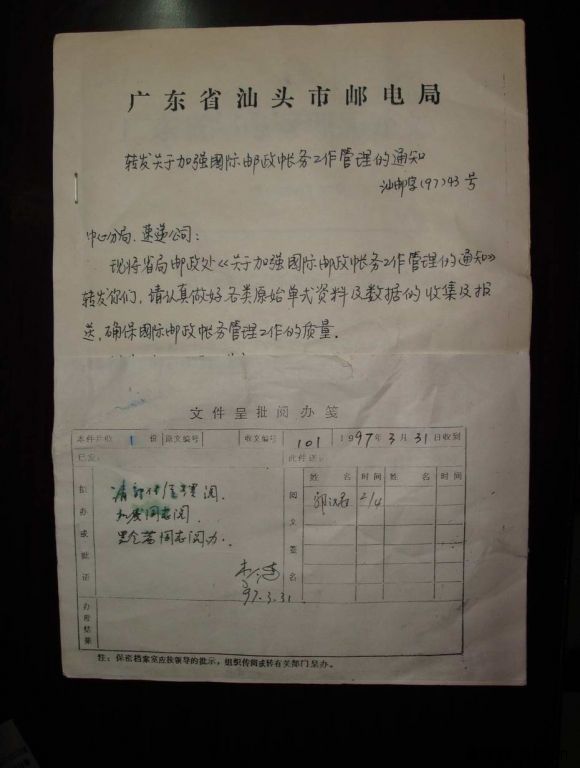 广东省汕头市邮电局
转发关于加强国际邮政帐务工作管理的通知
汕邮字(97)43号
中心分局、速递公司:
现将省局邮政处《关于加强国际邮政帐务工作管理的通知》
转发你们,请认真做好各类原始单式资料及数据的收集及报
送,确保国际邮政帐务管理工作的质量.
文件呈批阅办笺
本件共收 1 份 原文编号 收文编号 101 1997年3月31日收到
已发: 此件送:
姓名 时间 姓名 时间
拟办或批语
阅文签名
2/4
同志阅.
同志阅办.
97.3.31
办理结果
注:保密档案室应按领导的批示,组织传阅或转有关部门呈办.